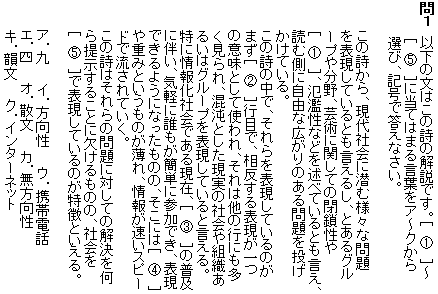 問1
以下の文はこの詩の解説です。［ ① ］～
［ ⑤ ］に当てはまる言葉をア～クから
選び、記号で答えなさい。
この詩から、現代社会に潜む様々な問題
を表現しているとも言えるし、とあるグル
ープや分野、芸術に関しての閉鎖性や
［ ① ］、氾濫性などを述べているとも言え、
読む側に自由な広がりのある問題を投げ
かけている。
この詩の中で、それらを表現しているのが
まず［ ② ］行目で、相反する表現が一つ
の意味として使われ、それは他の行にも多
く見られ、混沌とした現実の社会や組織あ
るいはグループを表現していると言える。
特に情報化社会である現在、［ ③ ］の普及
に伴い、気軽に誰もが簡単に参加でき、表現
できるようになったものの、そこには［ ④ ］
や重みというものが薄れ、情報が速いスピー
ドで流されていく。
この詩はそれらの問題に対しての解決を何
ら提示することに欠けるものの、社会を
［ ⑤ ］で表現しているのが特徴といえる。
ア．九　イ．方向性　ウ．携帯電話
エ．四　オ．散文　カ．無方向性
キ．韻文　ク．インターネット